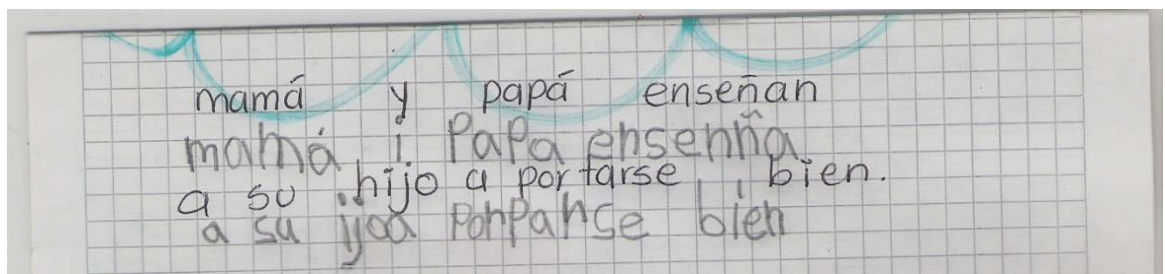 mamá y papá enseñan
mamá i PaPa ensenña
a su hijo a portarse bien.
a su ijoa PonPanse bien